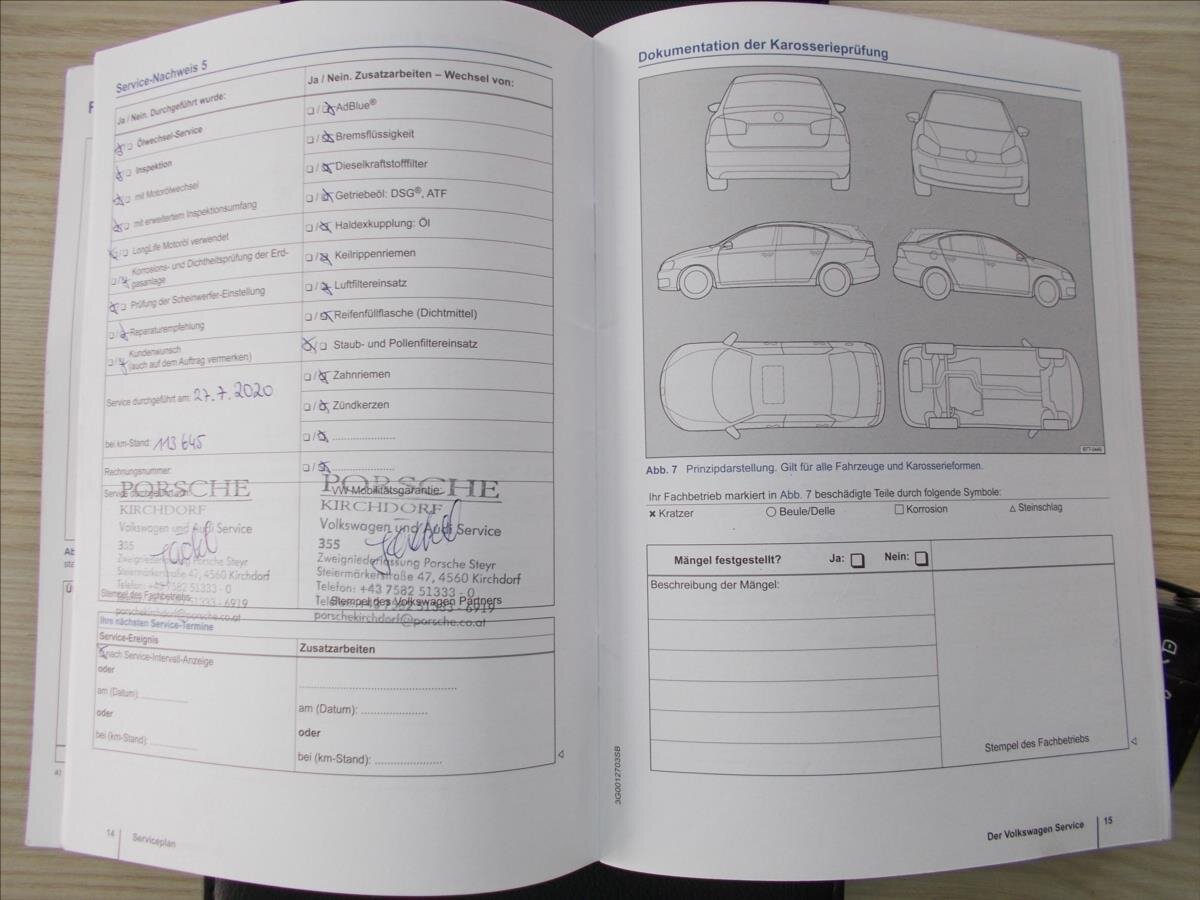 Service-Nachweis 5
Ja / Nein. Durchgeführt wurde:
Ölwechsel-Service
Inspektion
mit Motorölwechsel
mit erweitertem Inspektionsumfang
LongLife Motoröl verwendet
Korrosions- und Dichtheitsprüfung der Erd-
gasanlage
Prüfung der Scheinwerfer-Einstellung
Reparaturempfehlung
Kundenwunsch
(auch auf dem Auftrag vermerken)
Service durchgeführt am: 27.7.2020
bei km-Stand: 113 645
Rechnungsnummer:
Service durchgeführt von:
PORSCHE
KIRCHDORF
Volkswagen und Audi Service
355
Zweigniederlassung Porsche Steyr
Steiermärkerstraße 47, 4560 Kirchdorf
Telefon: +43 7582 51333 - 0
51333 - 6919
Stempel des Fachbetriebs
porschekirchdorf@porsche.co.at
Ja / Nein. Zusatzarbeiten – Wechsel von:
AdBlue®
Bremsflüssigkeit
Dieselkraftstofffilter
Getriebeöl: DSG®, ATF
Haldexkupplung: Öl
Keilrippenriemen
Luftfiltereinsatz
Reifenfüllflasche (Dichtmittel)
Staub- und Pollenfiltereinsatz
Zahnriemen
Zündkerzen
VW Mobilitätsgarantie:
PORSCHE
KIRCHDORF
Volkswagen und Audi Service
355
Zweigniederlassung Porsche Steyr
Steiermärkerstraße 47, 4560 Kirchdorf
Telefon: +43 7582 51333 - 0
Stempel des Volkswagen Partners
porschekirchdorf@porsche.co.at
Ihre nächsten Service-Termine
Service-Ereignis
nach Service-Intervall-Anzeige
oder
am (Datum): ..............
oder
bei (km-Stand): ..............
Zusatzarbeiten
am (Datum): ....................
oder
bei (km-Stand): ....................
14 Serviceplan
Dokumentation der Karosserieprüfung
Abb. 7 Prinzipdarstellung. Gilt für alle Fahrzeuge und Karosserieformen.
Ihr Fachbetrieb markiert in Abb. 7 beschädigte Teile durch folgende Symbole:
× Kratzer ○ Beule/Delle □ Korrosion △ Steinschlag
Mängel festgestellt? Ja: Nein:
Beschreibung der Mängel:
Stempel des Fachbetriebs
3G0012703SB
Der Volkswagen Service 15